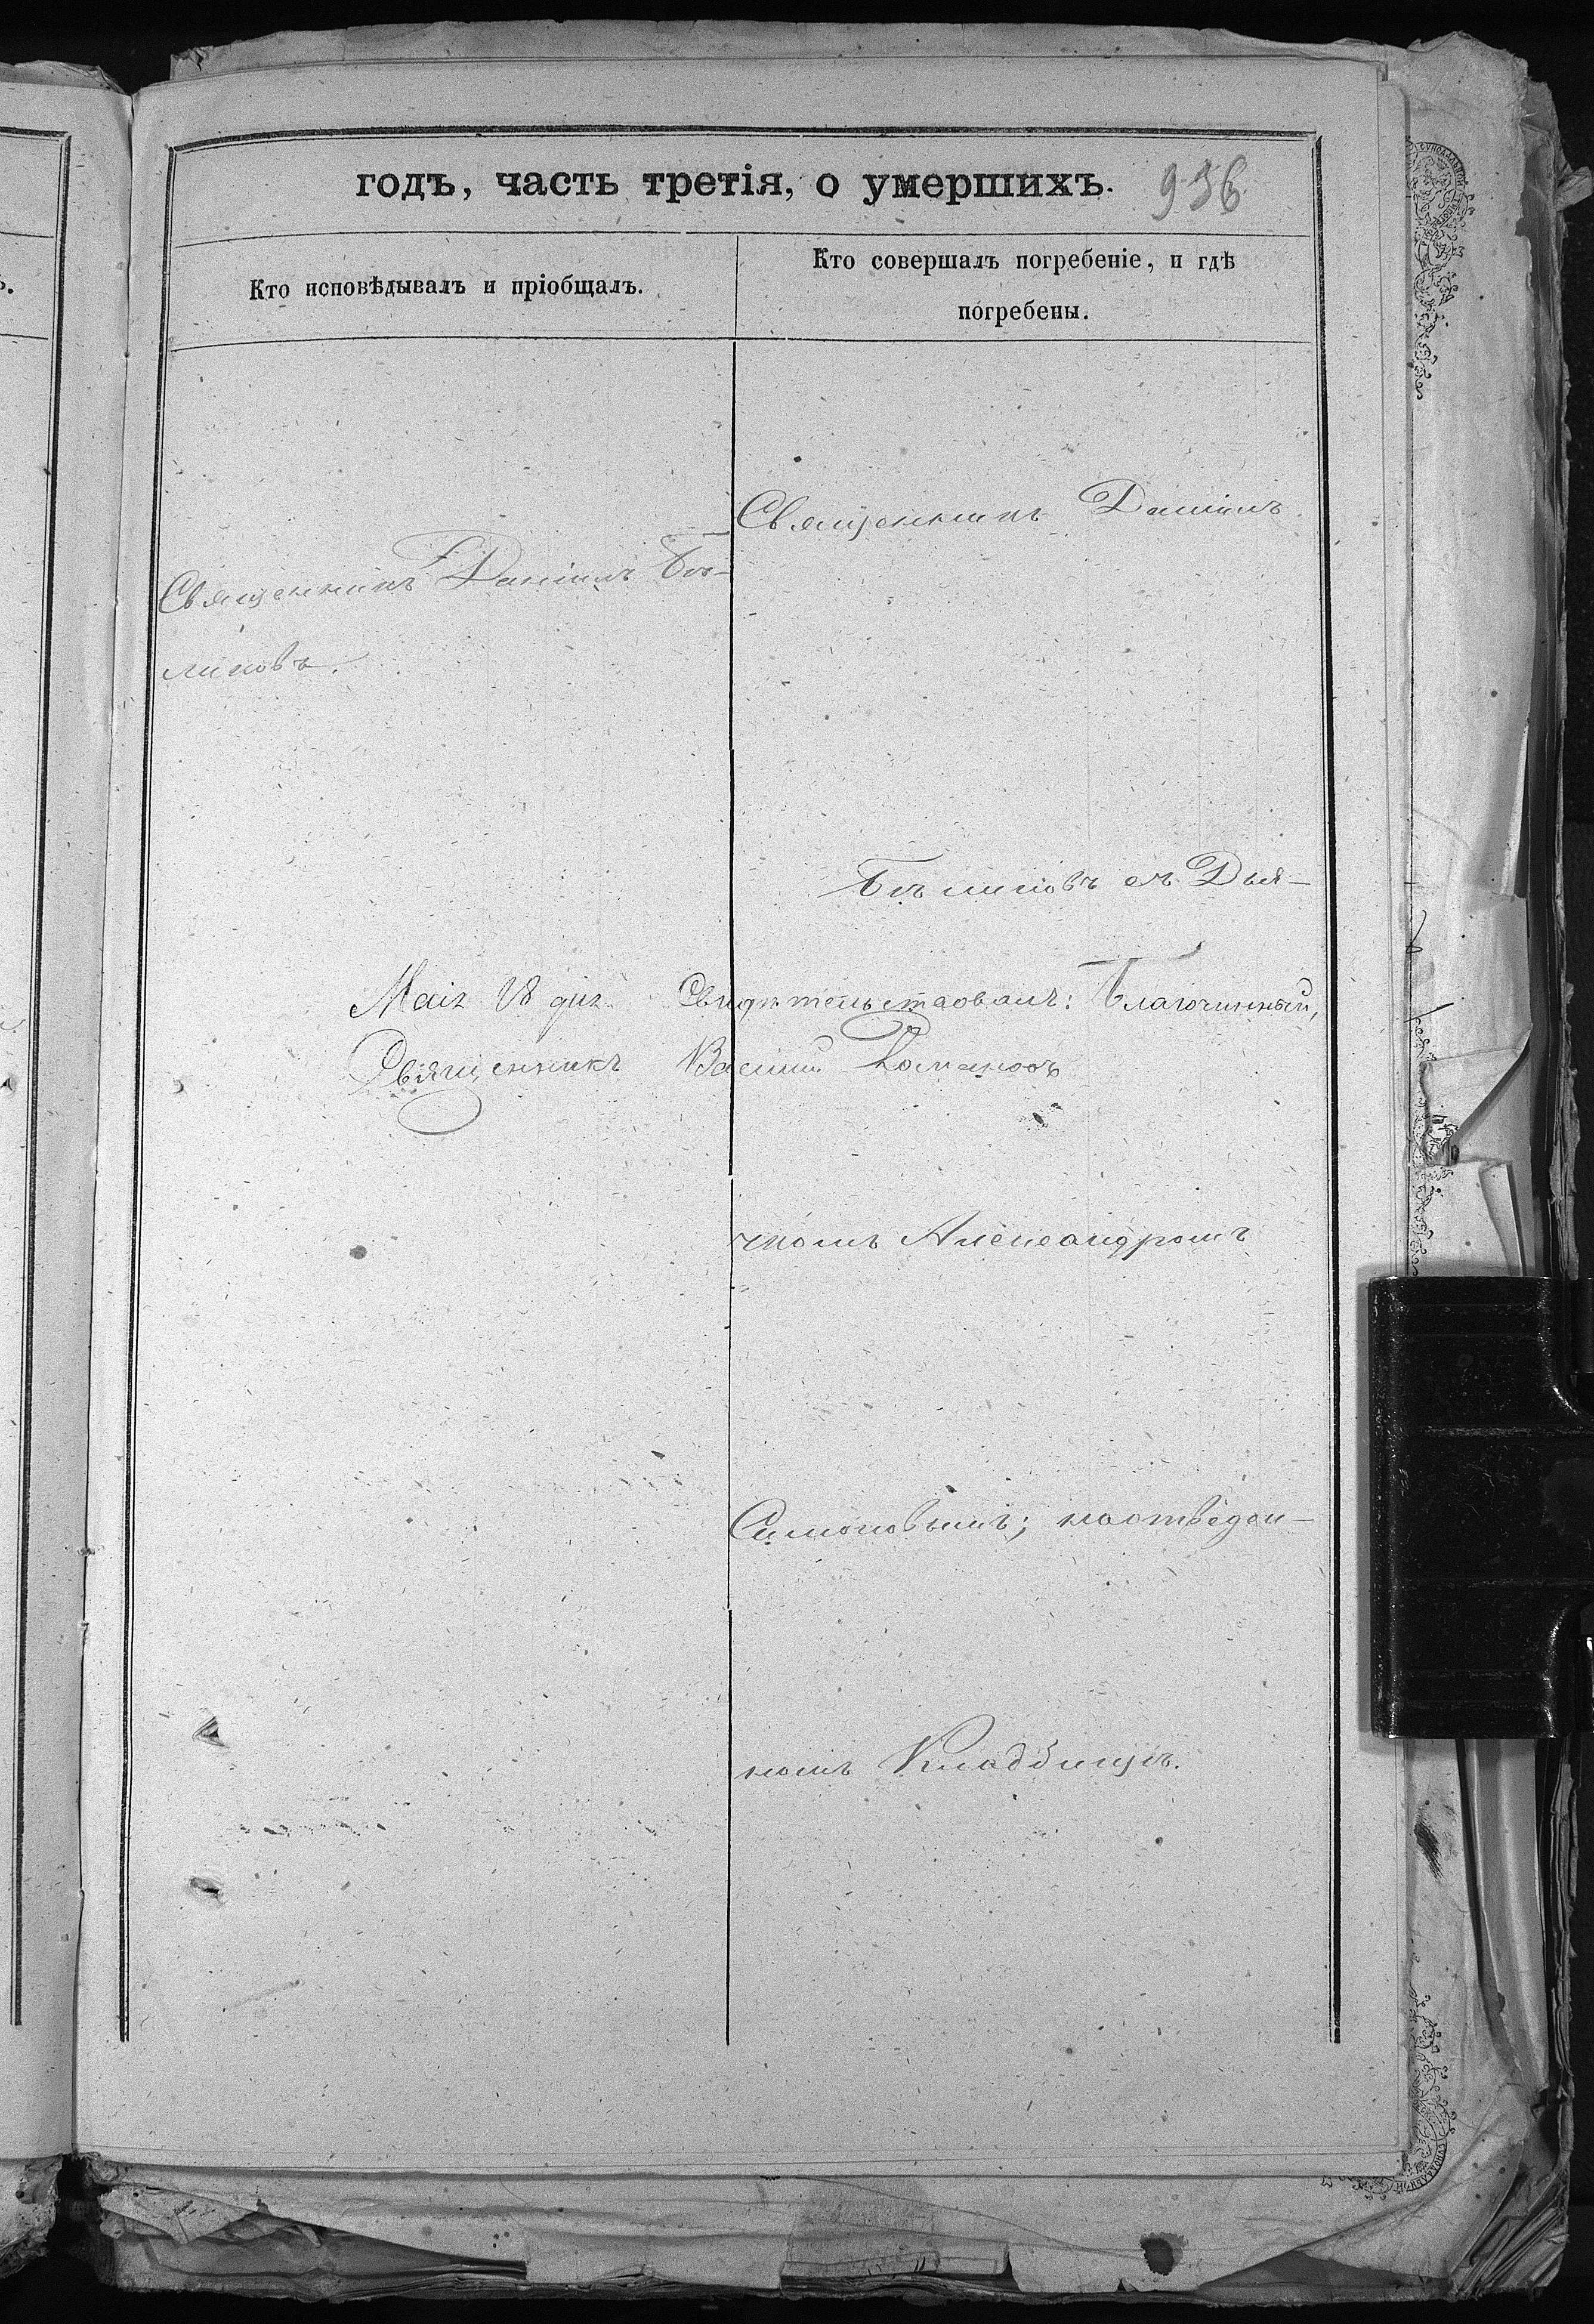 годъ, часть третія, о умершихъ. 936
Кто исповѣдывалъ и пріобщалъ.
Кто совершалъ погребеніе, и гдѣ
погребены.
Священникъ Даніилъ Бѣ-
ликовъ.
Священникъ Даніилъ
Бѣликовъ съ Дья-
Маія 28 дня Свидѣтельствовалъ: Благочинный,
Священникъ Василій Романовъ
чкомъ Александромъ
Симоновымъ; на отведен-
номъ Кладбищѣ.